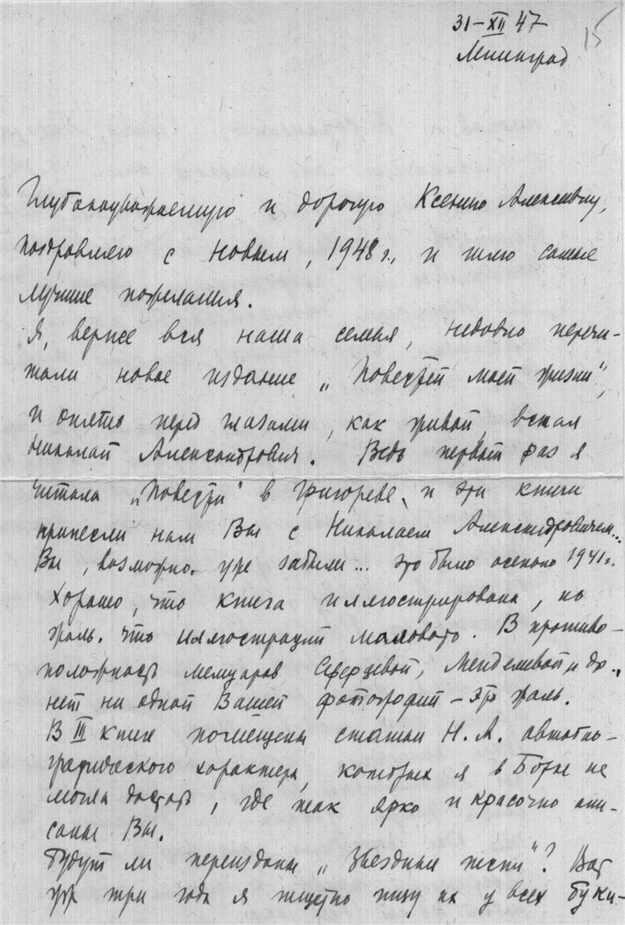 31–XII 47
15
Ленинград
Глубокоуважаемую и дорогую Ксению Алексеевну,
поздравляю с новым, 1948 г., и шлю самые
лучшие пожелания.
Я, вернее вся наша семья, недавно перечи-
тали новое издание „Повестей моей жизни“,
и опять перед глазами, как живой, встал
Николай Александрович. Ведь первый раз я
читала „Повести“ в Григорове, и эти книги
принесли нам Вы с Николаем Александровичем...
Вы, возможно, уже забыли... это было осенью 1941 г.
Хорошо, что книга иллюстрирована, но
жаль, что иллюстраций маловато. В противо-
положность мемуаров и др.,
нет ни одной Вашей фотографии – это жаль.
В III книге помещены статьи Н. А. автобио-
графического характера, которых я в Борке не
могла достать, где так ярко и красочно опи-
саны Вы.
Будут ли переизданы „Звездные песни“? Вот
уже три года я тщетно ищу их у всех буки-